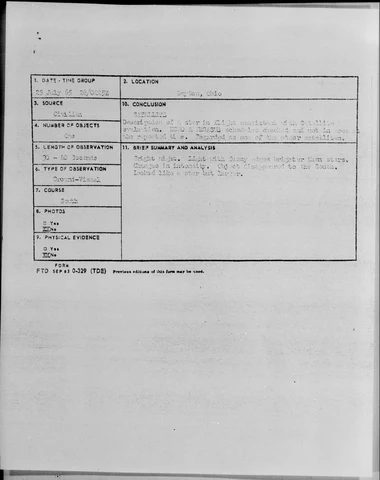 1. DATE - TIME GROUP
25 July 65
2. LOCATION
Dayton, Ohio
3. SOURCE
Civilian
10. CONCLUSION
SATELLITE
Description of a star in flight consistent with Satellite
4. NUMBER OF OBJECTS
One
evaluation. schedules checked and not in area at
the reported time. Regarded as one of the other satellites.
5. LENGTH OF OBSERVATION
11. BRIEF SUMMARY AND ANALYSIS
Seconds
Bright night. Light with fuzzy edges brighter than stars.
6. TYPE OF OBSERVATION
Changed in intensity. Object disappeared to the South.
Ground-Visual
Looked like a star but larger.
7. COURSE
South
8. PHOTOS
□ Yes
No
9. PHYSICAL EVIDENCE
□ Yes
No
FORM
FTD SEP 63 0-329 (TDE) Previous editions of this form may be used.